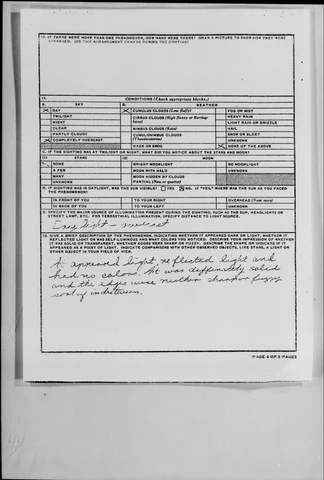 10. IF THERE WERE MORE THAN ONE PHENOMENON, HOW MANY WERE THERE? DRAW A PICTURE TO SHOW HOW THEY WERE
ARRANGED. DID THIS ARRANGEMENT CHANGE DURING THE SIGHTING?
11. CONDITIONS (Check appropriate blocks.)
A. SKY B. WEATHER
X DAY X CUMULUS CLOUDS (Low fluffy) FOG OR MIST
TWILIGHT CIRRUS CLOUDS (High fleece or Herring-bone) HEAVY RAIN
NIGHT LIGHT RAIN OR DRIZZLE
CLEAR NIMBUS CLOUDS (Rain) HAIL
PARTLY CLOUDY CUMULONIMBUS CLOUDS (Thunderstorms) SNOW OR SLEET
X COMPLETELY OVERCAST UNKNOWN
HAZE OR SMOG X NONE OF THE ABOVE
C. IF THE SIGHTING WAS AT TWILIGHT OR NIGHT, WHAT DID YOU NOTICE ABOUT THE STARS AND MOON?
(1) STARS (2) MOON
NONE BRIGHT MOONLIGHT NO MOONLIGHT
A FEW MOON WITH HALO UNKNOWN
MANY MOON HIDDEN BY CLOUDS
UNKNOWN PARTIAL (New or quarter)
D. IF SIGHTING WAS IN DAYLIGHT, WAS THE SUN VISIBLE? YES NO. IF "YES," WHERE WAS THE SUN AS YOU FACED
THE PHENOMENON?
IN FRONT OF YOU TO YOUR RIGHT OVERHEAD (Near noon)
IN BACK OF YOU TO YOUR LEFT UNKNOWN
E. SPECIFY THE MAJOR SOURCE OF ILLUMINATION PRESENT DURING THE SIGHTING, SUCH AS THE SUN, HEADLIGHTS OR
STREET LAMP, ETC. FOR TERRESTRIAL ILLUMINATION, SPECIFY DISTANCE TO LIGHT SOURCE.
Day light - overcast
12. GIVE A BRIEF DESCRIPTION OF THE PHENOMENON, INDICATING WHETHER IT APPEARED DARK OR LIGHT, WHETHER IT
REFLECTED LIGHT OR WAS SELF-LUMINOUS AND WHAT COLORS YOU NOTICED. DESCRIBE YOUR IMPRESSION OF WHETHER
IT WAS SOLID OR TRANSPARENT, WHETHER EDGES WERE SHARP OR FUZZY. DESCRIBE THE SHAPE OR INDICATE IF IT
APPEARED AS A POINT OF LIGHT. INDICATE COMPARISONS WITH OTHER OBSERVED OBJECTS, LIKE STARS, A LIGHT OR
OTHER OBJECT IN YOUR FIELD OF VIEW.
It appeared light, reflected light and
had no colors. It was deffinately solid
and the edges were neither sharp or fuzzy
sort of inbetween.
PAGE 4 OF 9 PAGES